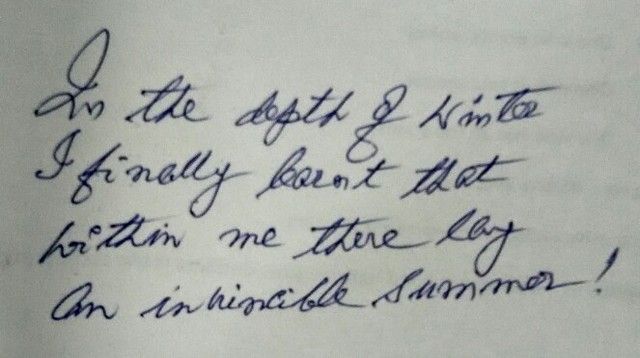 In the depth of winter
I finally learnt that
within me there lay
an invincible summer!